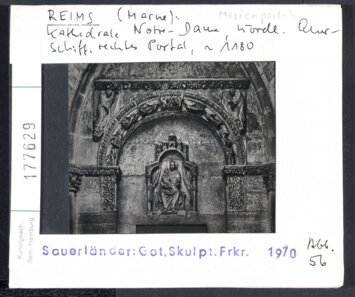 REIMS (Marne). Marienportal
Kathedrale Notre-Dame, nördl. Quer-
schiff, rechtes Portal, ~ 1180
177629
Kunstgesch.
Sem. Hamburg
Sauerländer: Got. Skulpt. Frkr. 1970
Abb.
56